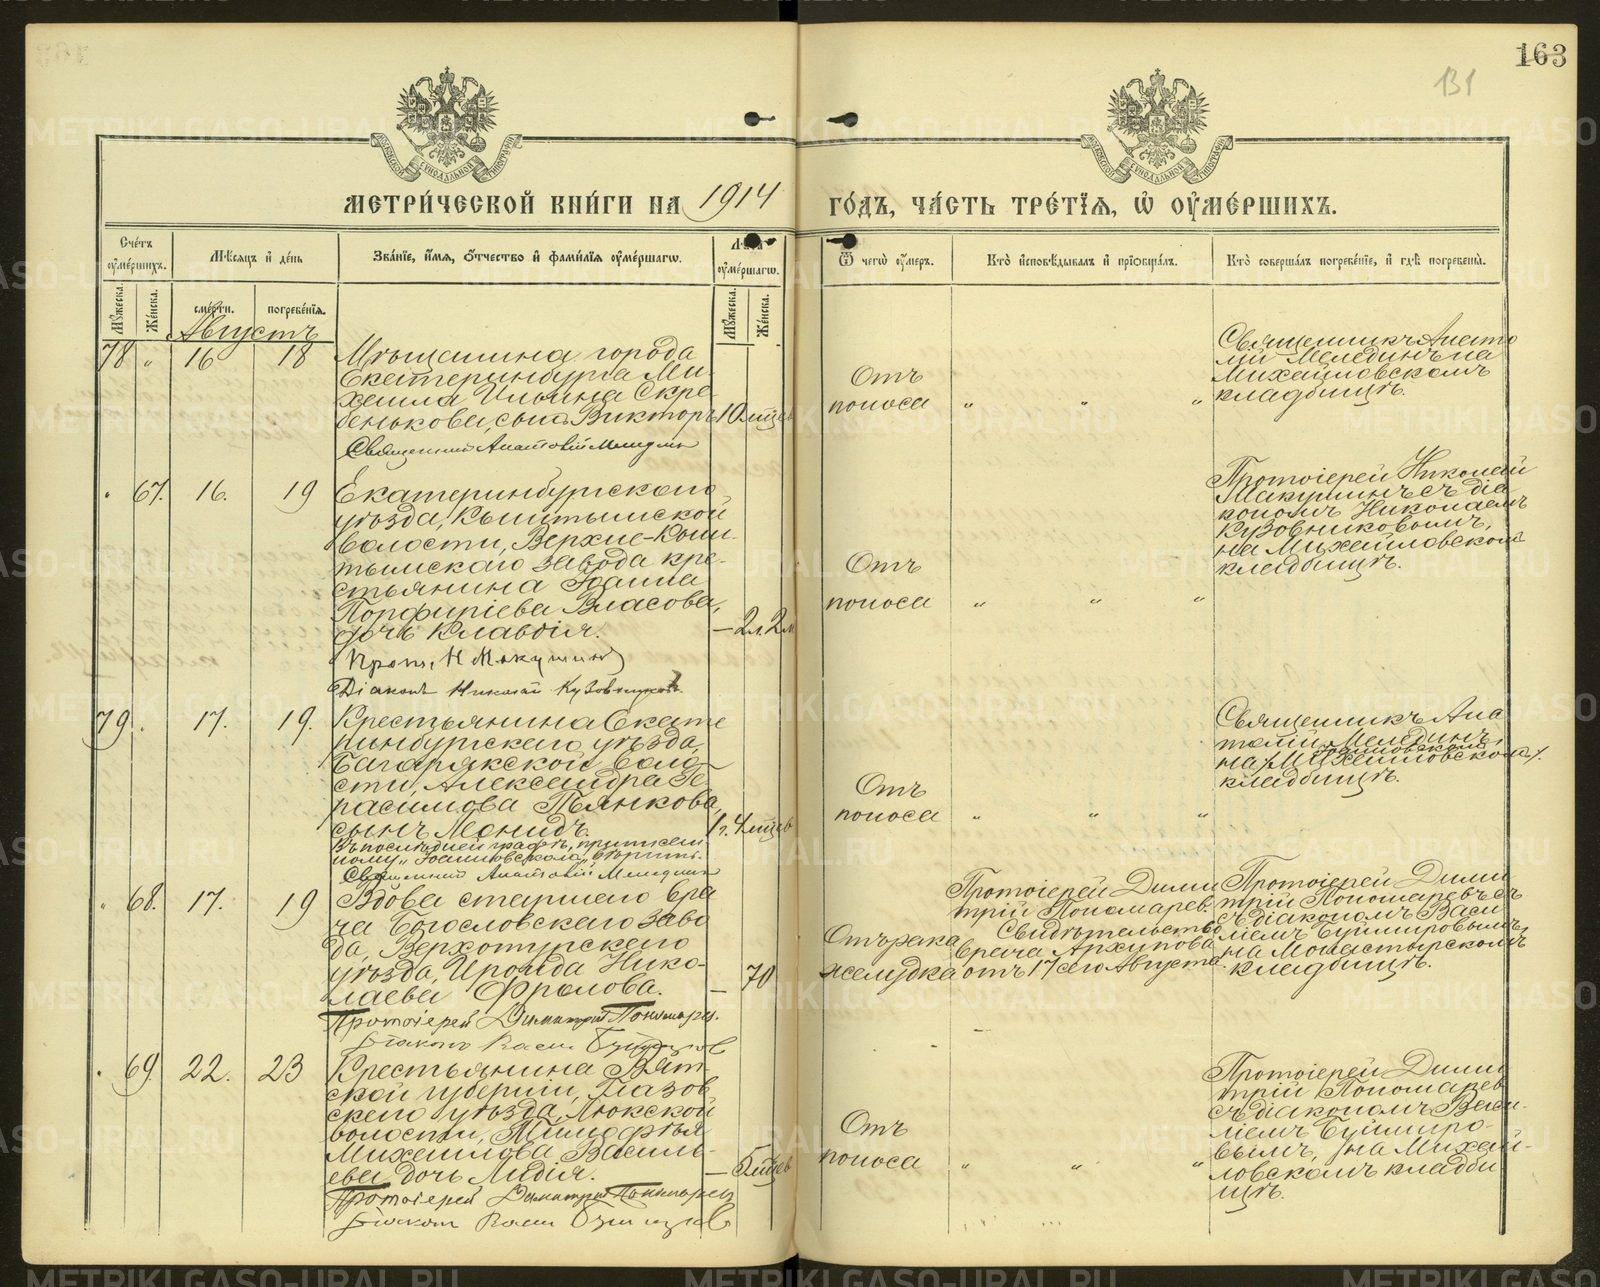 163
131
МЕТРИ́ЧЕСКОЙ КНИ́ГИ НА 1914 ГО́ДЪ, ЧА́СТЬ ТРЕ́ТІѦ, Ѡ ОУ҆МЕ́РШИХЪ.
Сче́тъ оу҆ме́ршихъ.
Мѣ́сѧцъ и҆ де́нь
Зва́нїе, и҆́мѧ, ѻ҆́тчество и҆ фами́лїѧ оу҆ме́ршагѡ.
Лѣ́та оу҆ме́ршагѡ.
Ѿ чегѡ̀ оу҆́меръ.
Кто̀ и҆сповѣ́дывалъ и҆ прїѡбща́лъ.
Кто̀ соверша́лъ погребе́нїе, и҆ гдѣ̀ погребены̀.
Мꙋ́жеска.
Же́нска.
сме́рти.
погребе́нїѧ.
Мꙋ́жеска.
Же́нска.
Августъ
78 " 16 18
Мѣщанина города
Екатеринбурга Ми-
хаила Ильина Скре-
бенькова, сынъ Викторъ 10 мѣцевъ
Священникъ Анатолій Мелединъ
Отъ
поноса " " "
Священникъ Анато
лій Мелединъ на
Михайловскомъ
кладбищѣ.
" 67. 16. 19
Екатеринбургскаго
уѣзда, Кыштымской
волости, Верхне-Кыш-
тымскаго завода кре-
стьянина Іоанна
Порфиріева Власова,
дочь Клавдія. — 2 л. 2 м.
Прот. Н Макушинъ
Діаконъ Николай Кузовниковъ
Отъ
поноса " " "
Протоіерей Николай
Макушинъ съ діа
кономъ Николаемъ
Кузовниковымъ,
на Михайловскомъ
кладбищѣ.
79 " 17. 19.
Крестьянина Екате
ринбургскаго уѣзда,
Багарякской воло-
сти, Александра Ге-
расимова Пьянкова,
сынъ Леонидъ. 1 г. 4 мѣцевъ
Въ последней графѣ, приписан
ному "Іоанновскомъ" вѣрить.
Священникъ Анатолій Мелединъ
Отъ
поноса " " "
Священникъ Ана
толій Мелединъ,
Іоанновскомъ
на Михайловскомъ
кладбищѣ.
" 68. 17. 19
Вдова старшаго вра
ча Богословскаго заво
да, Верхотурскаго
уѣзда, Ираида Нико-
лаева Фролова. — 70
Протоіерей Димитрій Пономаревъ.
Отъ рака
желудка
Протоіерей Дими
трій Пономаревъ.
Свидѣтельство
врача Архипова
отъ 17 сего Августа.
Протоіерей Дими
трій Пономаревъ съ
діакономъ Васи
ліемъ
на Монастырскомъ
кладбищѣ.
" 69. 22. 23
Крестьянина Вят-
ской губерніи, Глазов
скаго уѣзда, Люкской
волости, Тимофея
Михаилова Василь-
ева дочь Лидія. — 5 мѣцевъ
Протоіерей Димитрій Пономаревъ
Отъ
поноса " " "
Протоіерей Дими
трій Пономаревъ
съ діакономъ Васи-
ліемъ
на Михай-
ловскомъ кладби
щѣ.
METRIKI.GASO-URAL.RU